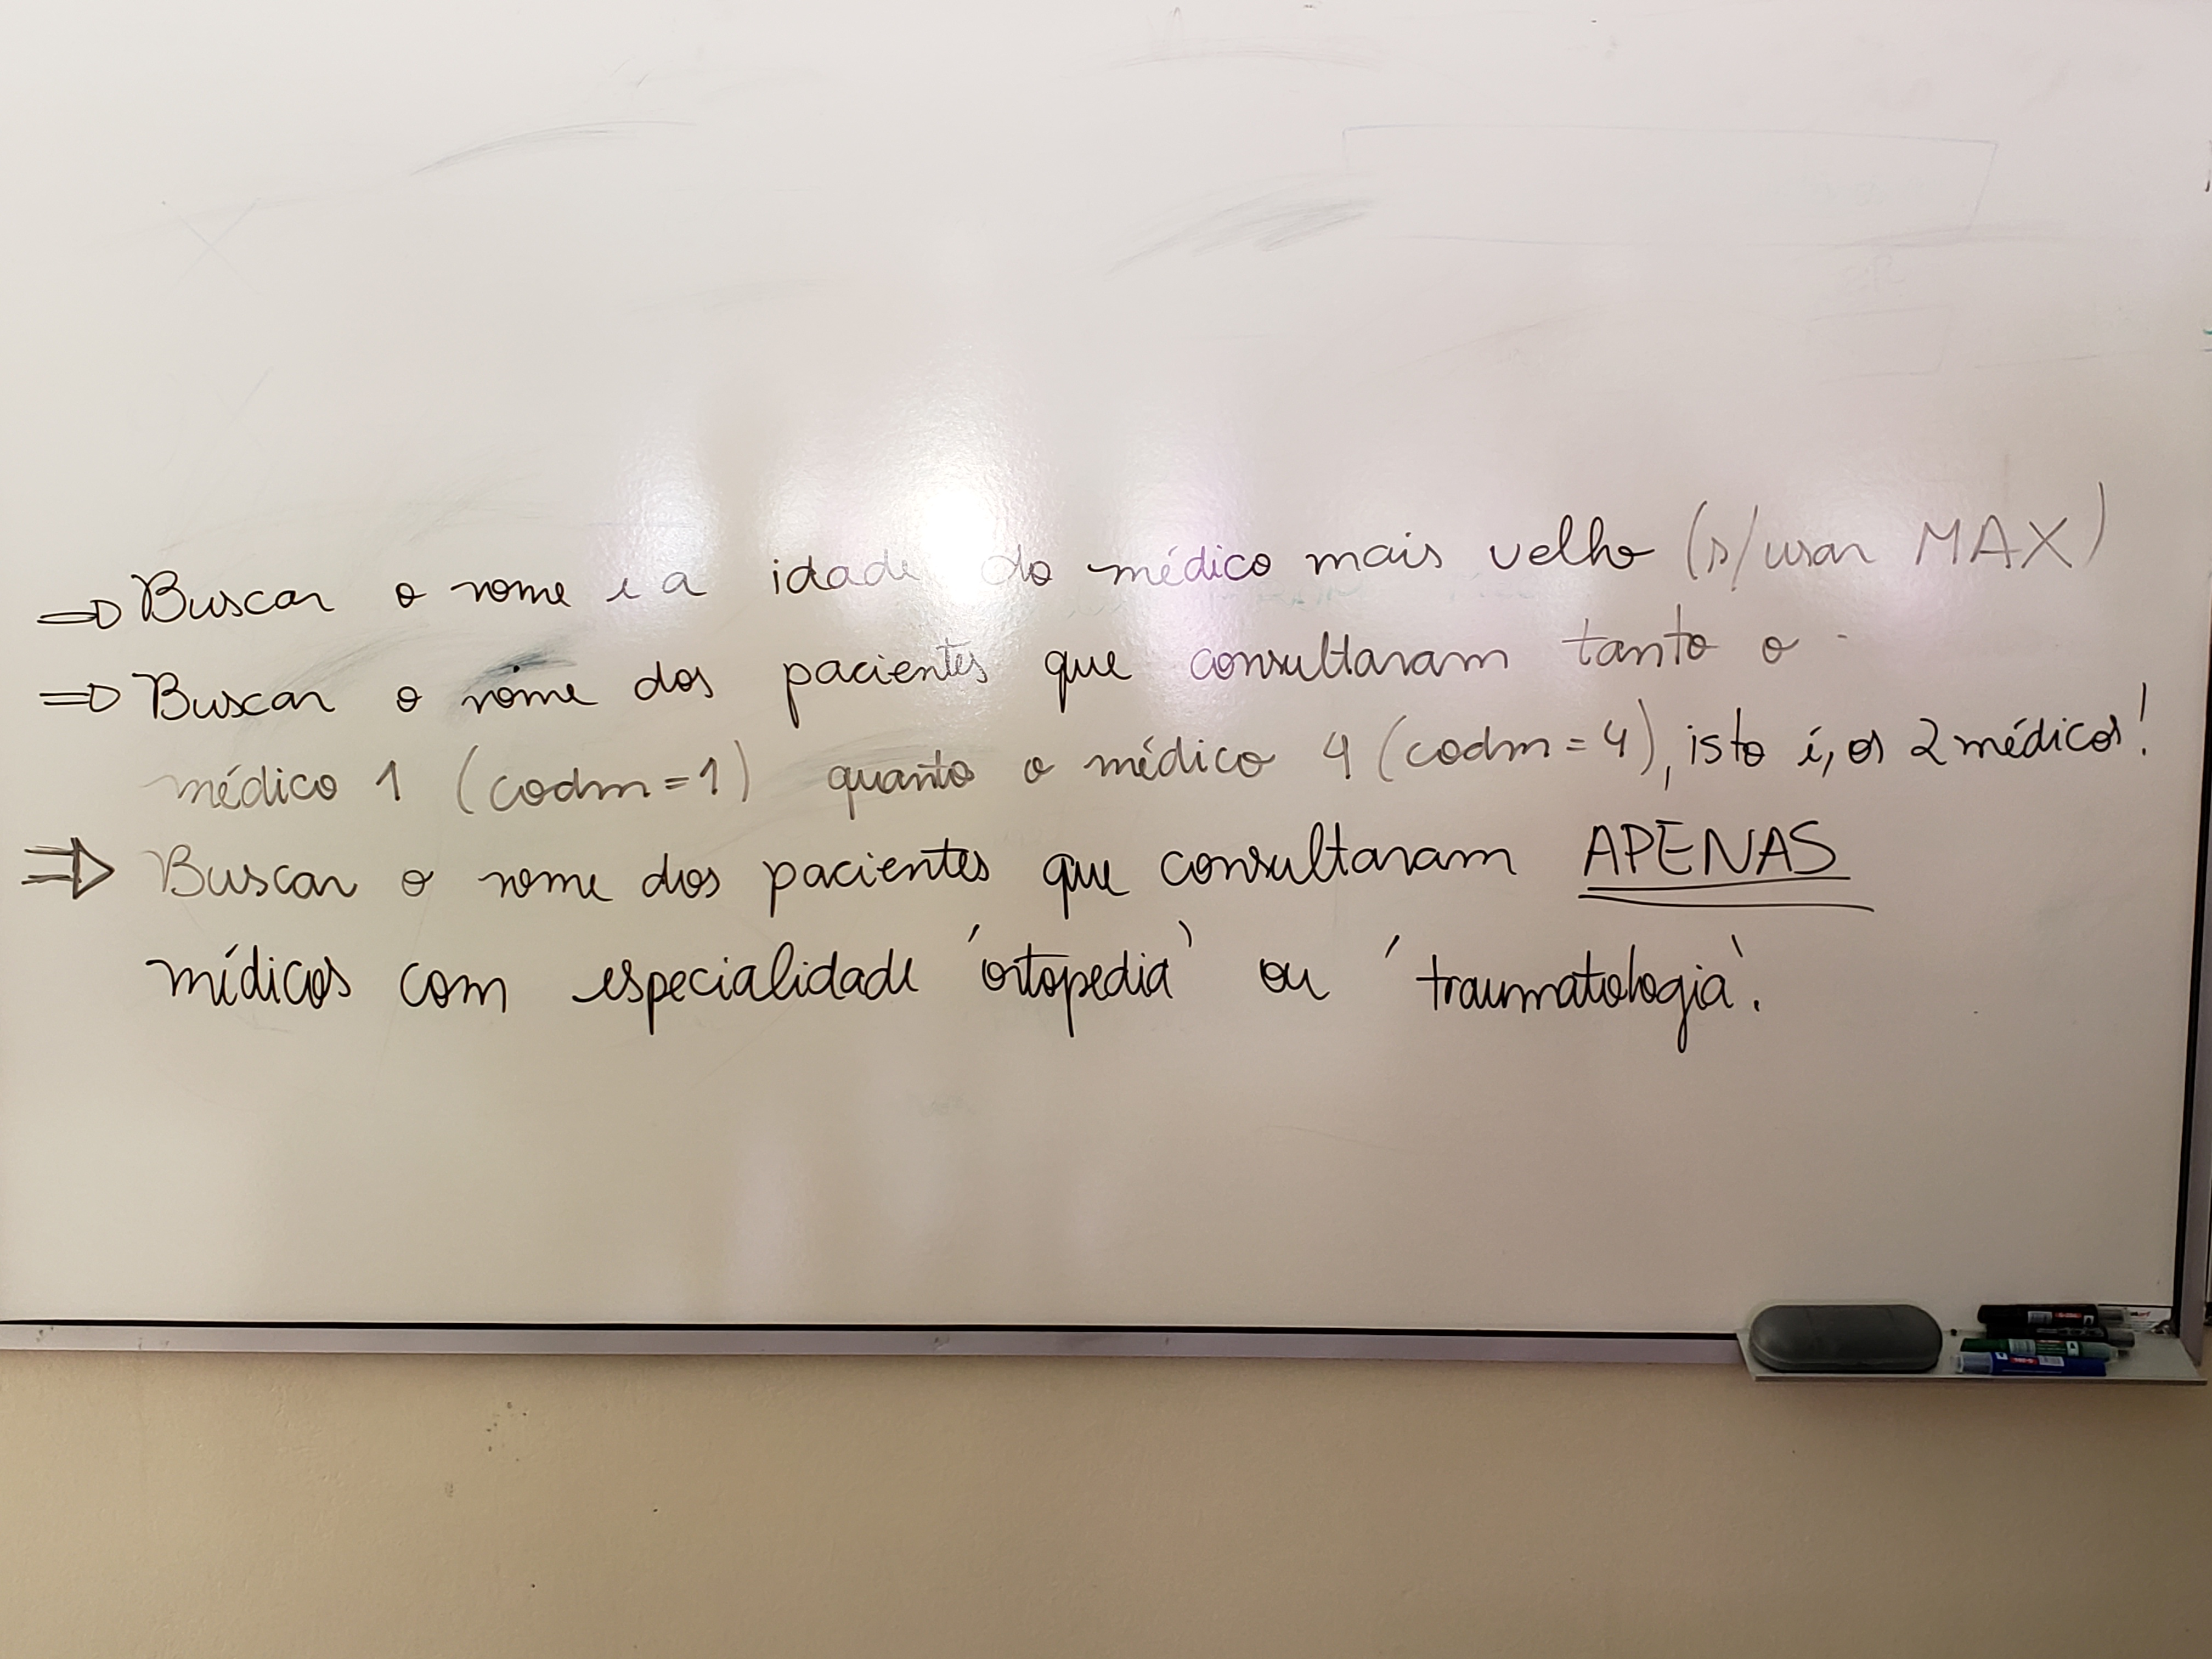 ⇒ Buscar o nome e a idade do médico mais velho (s/ usar MAX)
⇒ Buscar o nome dos pacientes que consultaram tanto o
médico 1 (codm=1) quanto o médico 4 (codm=4), isto é, os 2 médicos!
⇒ Buscar o nome dos pacientes que consultaram APENAS
médicos com especialidade 'ortopedia' ou 'traumatologia'.